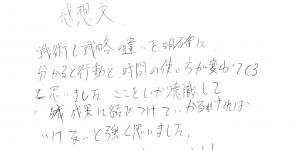 感想文
戦術と戦略の違いを明確に
分かると行動と時間の使い方が変わってくる
と思いました ここをしっかり意識して
成果に結びつけていか
いけないと強く思いました。